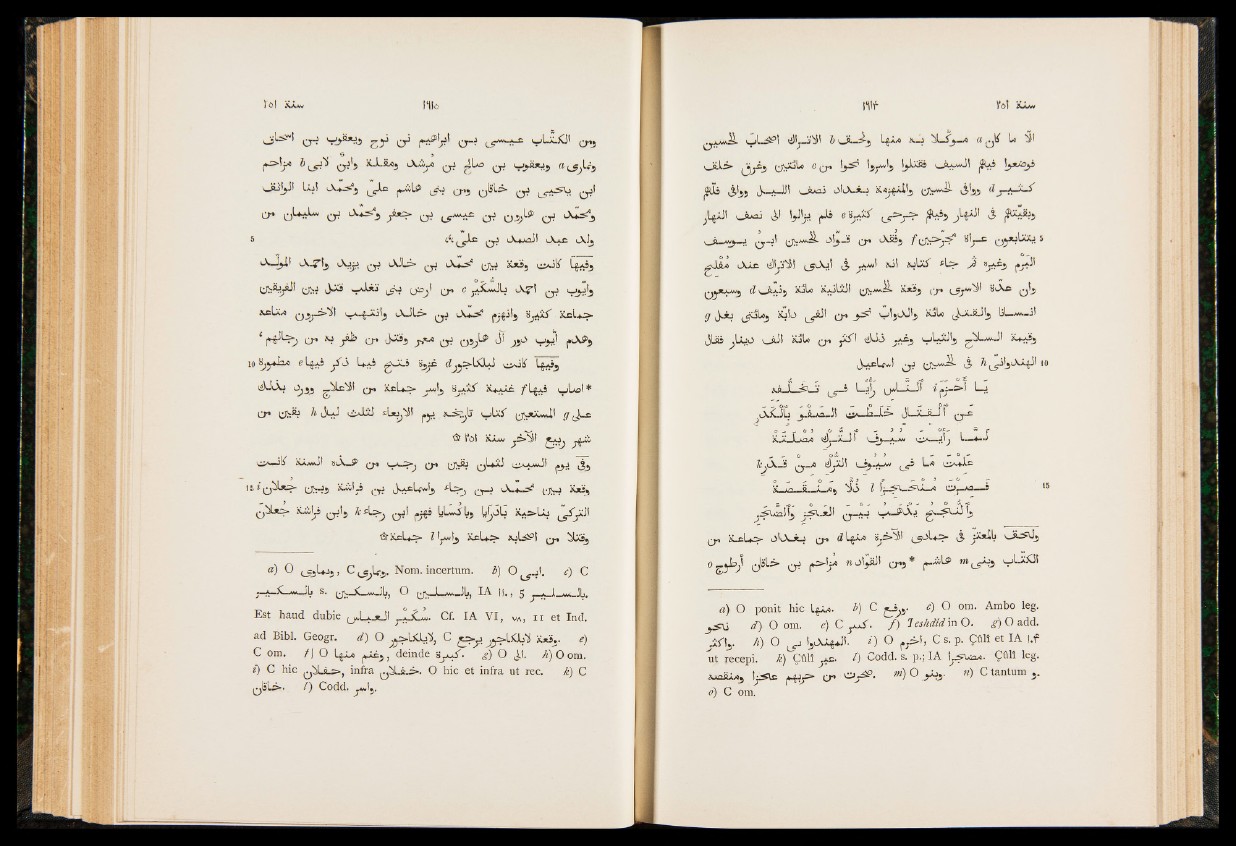 سنة ٢٥١ ١٦١٤
الا ما كان a موكّلا به منها ولحق b الاتراك اصحاب الحسين
فوضعوا فيهم السيف فقتلوا واسروا نحوا من c مائتين وغرق خلق
كثير d ووافى الحسين والمنهزمة بغداد نصف الليل ووافى فلّهم
وبقيّتهم فى النهار وفيهم جرحى كثيرة e فلم يزالوا الى نصف النهار
5 يتتابعون عراة مجرّحين f وفُقد من قوّاد الحسين ابن يوسف
البَرْم وغيره ثم جاء كتابه انه اسير فى ايدى الاتراك عند مفلح
وان عدّة الاسرى من وقعة الحسين الثانية مائة ونيف d وسبعون
انسانا والقتلى مائة والدوابّ نحو من الفى دابّة ومائتى بغل g
وقيمة السلاح والثياب وغير ذلك اكثر من مائة الف دينار فقال
10 الهندوانى h فى الحسين بن اسماعيل
يا أَحْزَمَ i النَّاس رَأْيًا فى تَخَلُّفه
عن القِتَال خَلَطْتَ الصَفْوَ بِالْكَدَرِ
لَمَّا رَأَيْتَ سُيُوفَ التُّرْكِ مُصْلَتَةً
عَلِمْتَ ما فى سُيُوفِ التُّرْكِ مِنْ قَدَرِ k
15 فَصِرْتَ مُنْحَجِزًا l ذُلًّا ومَنْقَصَةً
وَالنُّجْحُ يَذْهَبُ بَيْنَ العَجْزِ وَالضَّجَرِ
ولحق بالمعتز فى جمادى الآخرة منها d من بغداد جماعة من
الكتّاب وبنى m هاشم * ومن القوّاد n مزاحم بن خاقان أرطوج o
a) O ponit hic منها. b) C ورفع. c) O om. Ambo leg.
نحو d) O om. e) C كثير. f) Teshdîd in O. g) O add.
واكثر. h) O الهندوا بى. i) O احزم, C s. p. Çûlî et IA
ut recepi. k) Çûlî عبر. l) Codd. s. p.; IA منحجرا. Çûlî leg.
صرت من حربهم عاجزا ومنقصة. m) O وبنو. n) C tantum و.
o) C om.
سنة ٢٥١ ١٦١٥
ومن الكتّاب عيسى بن ابرهيم بن نوح ويعقوب بن اسحاق
ونمارى a ويعقوب بن صالح بن مُرشد ومقلة وابنٌ لابى b مزاحم
ابن يحيى بن خاقان ومن بنى هاشم علىّ ومحمّد ابنا الواثق
ومحمّد بن هارون بن عيسى بن جعفر ومحمّد بن سليمان من
5 ولد عبد الصمد بن علىّ ۞
وفيها كانت وقعة بين محمّد بن خالد بن يزيد واحمد المولّد
وايّوب بن احمد بالسُكَيْر c من ارض بنى تغلب قتل بين الفريقين
جماعة كثيرة وانهزم محمد بن خالد وانتهب الآخرون متاعه
وهدم ايّوب دور آل هارون بن معمر وقتل من ظفر به من رجالهم،
10 وفيها كانت لبلكاجور d غزوة فتح فيها ذكر فيها e مطمورة
*اصاب فيها f غنيمة كثيرة واسر جماعة من الاعلاج وورد بذلك
على g المستعين كتاب تاريخه يوم الاربعاء لثلث ليال h بقين من
شهر ربيع الآخر سنة ٢٥١ ۞
وفى يوم السبت لثمان بقين من رجب من هذه السنة كانت
15 وقعة بين محمّد بن رجاء واسماعيل بن فراشة وبين جعلان i
التركى بناحية باذرايا وباكسايا فهزم ابن رجاء k وابن فراشة جعلان
وقتلا من اصحابه جماعة واسرا l جماعة ۞
a) O ونمادى, C ونمارى. Nom. incertum. b) O ابى. c) C
بالسكير s. بالسكين, O بالسلسن, IA بالسلير.
Est haud dubie سكير العباس. Cf. IA VI, ٧٨, 11 et Ind.
ad Bibl. Geogr. d) O لايلكاجور, C وقعة لايلكاجور يرجح. e)
C om. f) O وغنم منها, deinde كبيرة. g) O الى. h) O om.
i) C hic جعلان, infra حعلان. O hic et infra ut rec. k) C
خاقان. l) Codd. واسر.